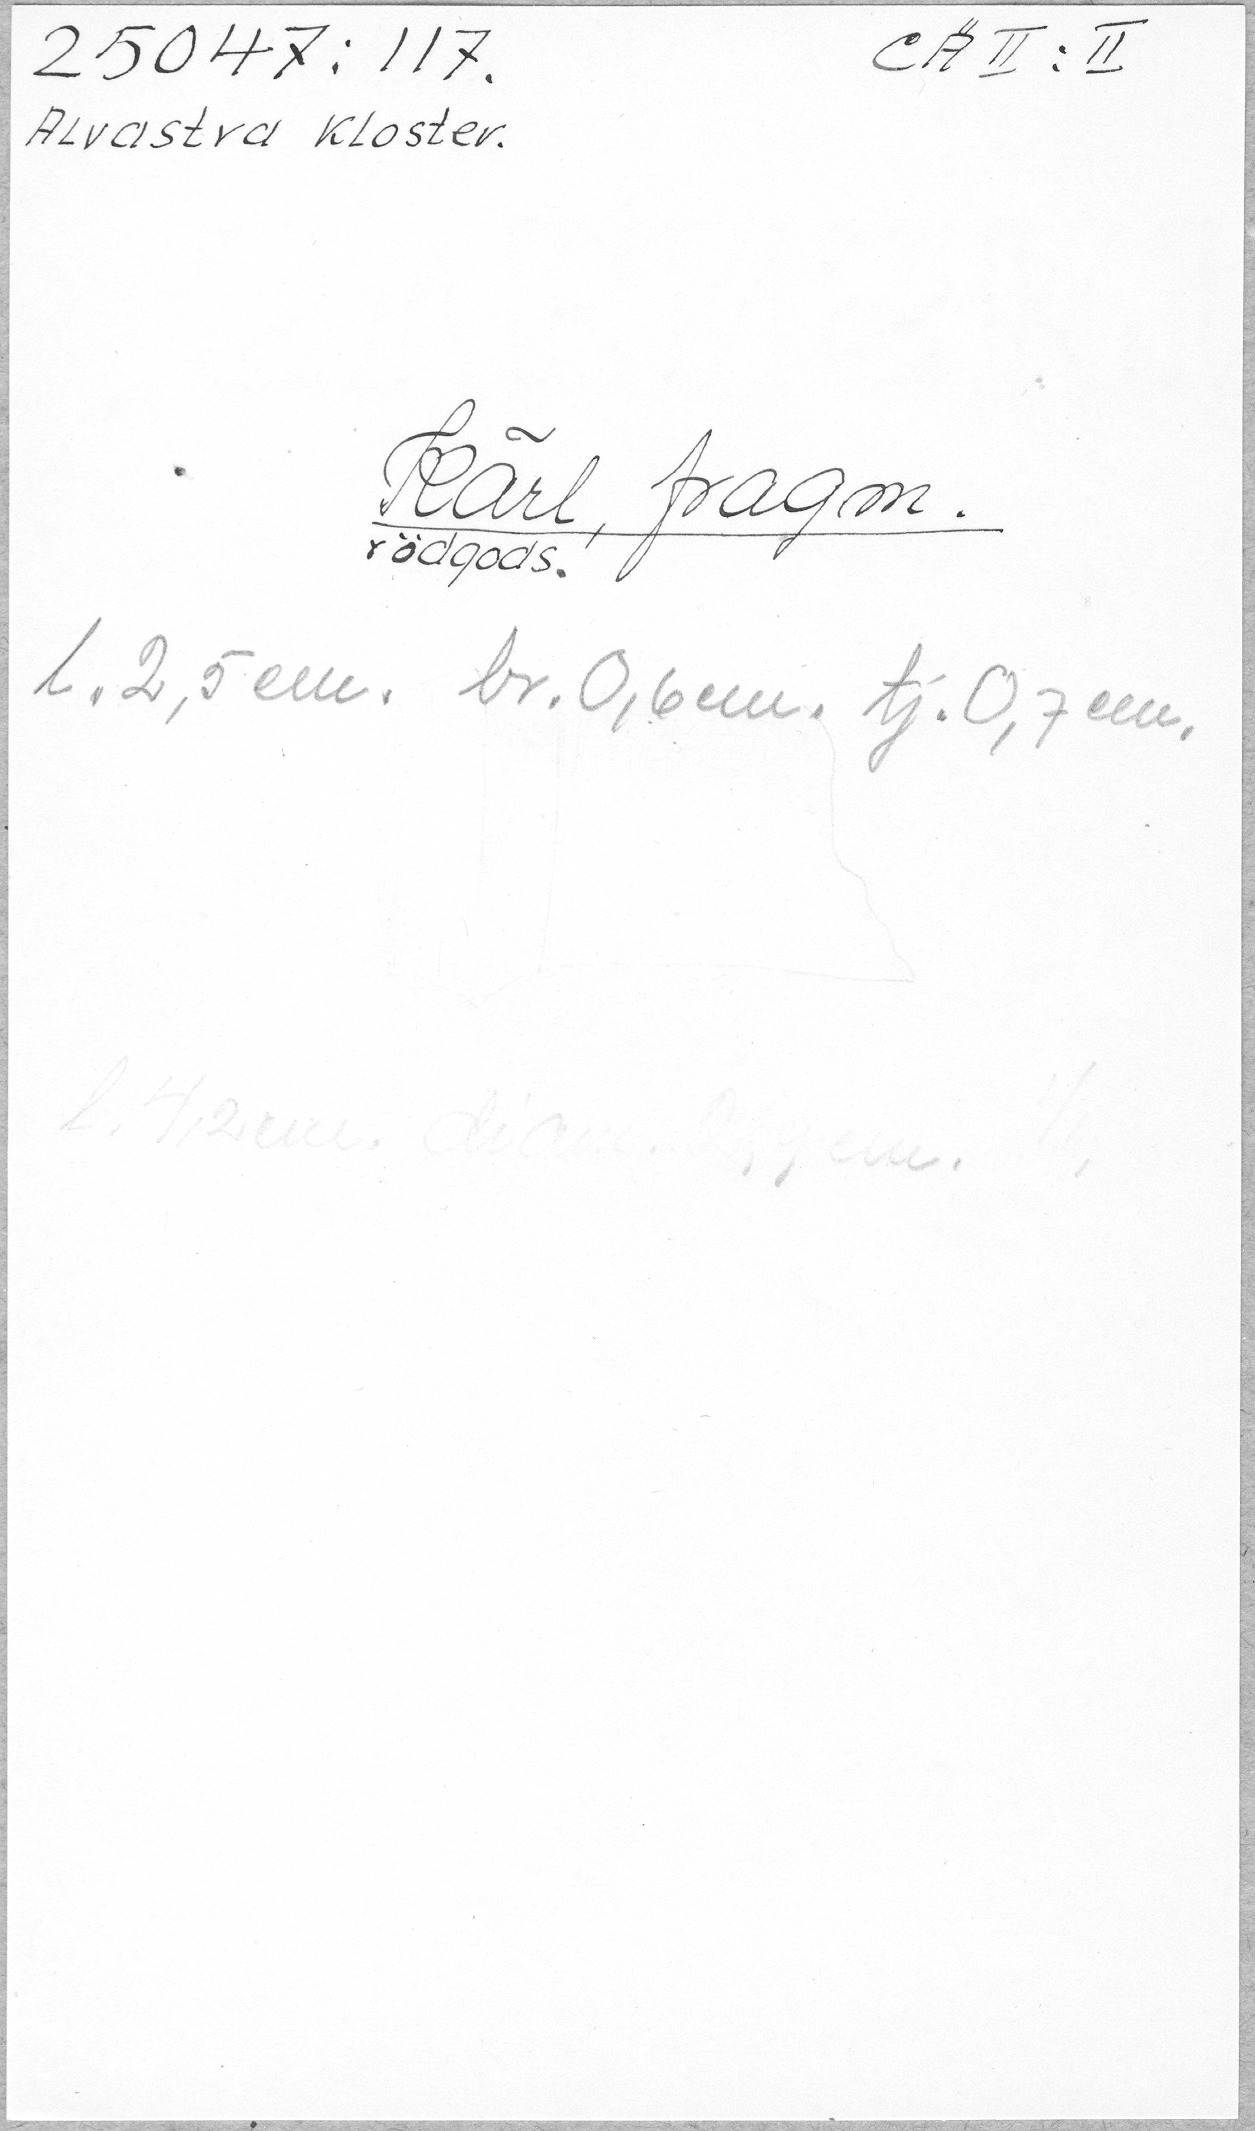 25047:117. CÄ II:II
Alvastra Kloster.
Kärl, fragm.
rödgods.
L. 2,5 cm. br. 0,6 cm. tj. 0,7 cm.
l. 4,2 cm. diam. cm.